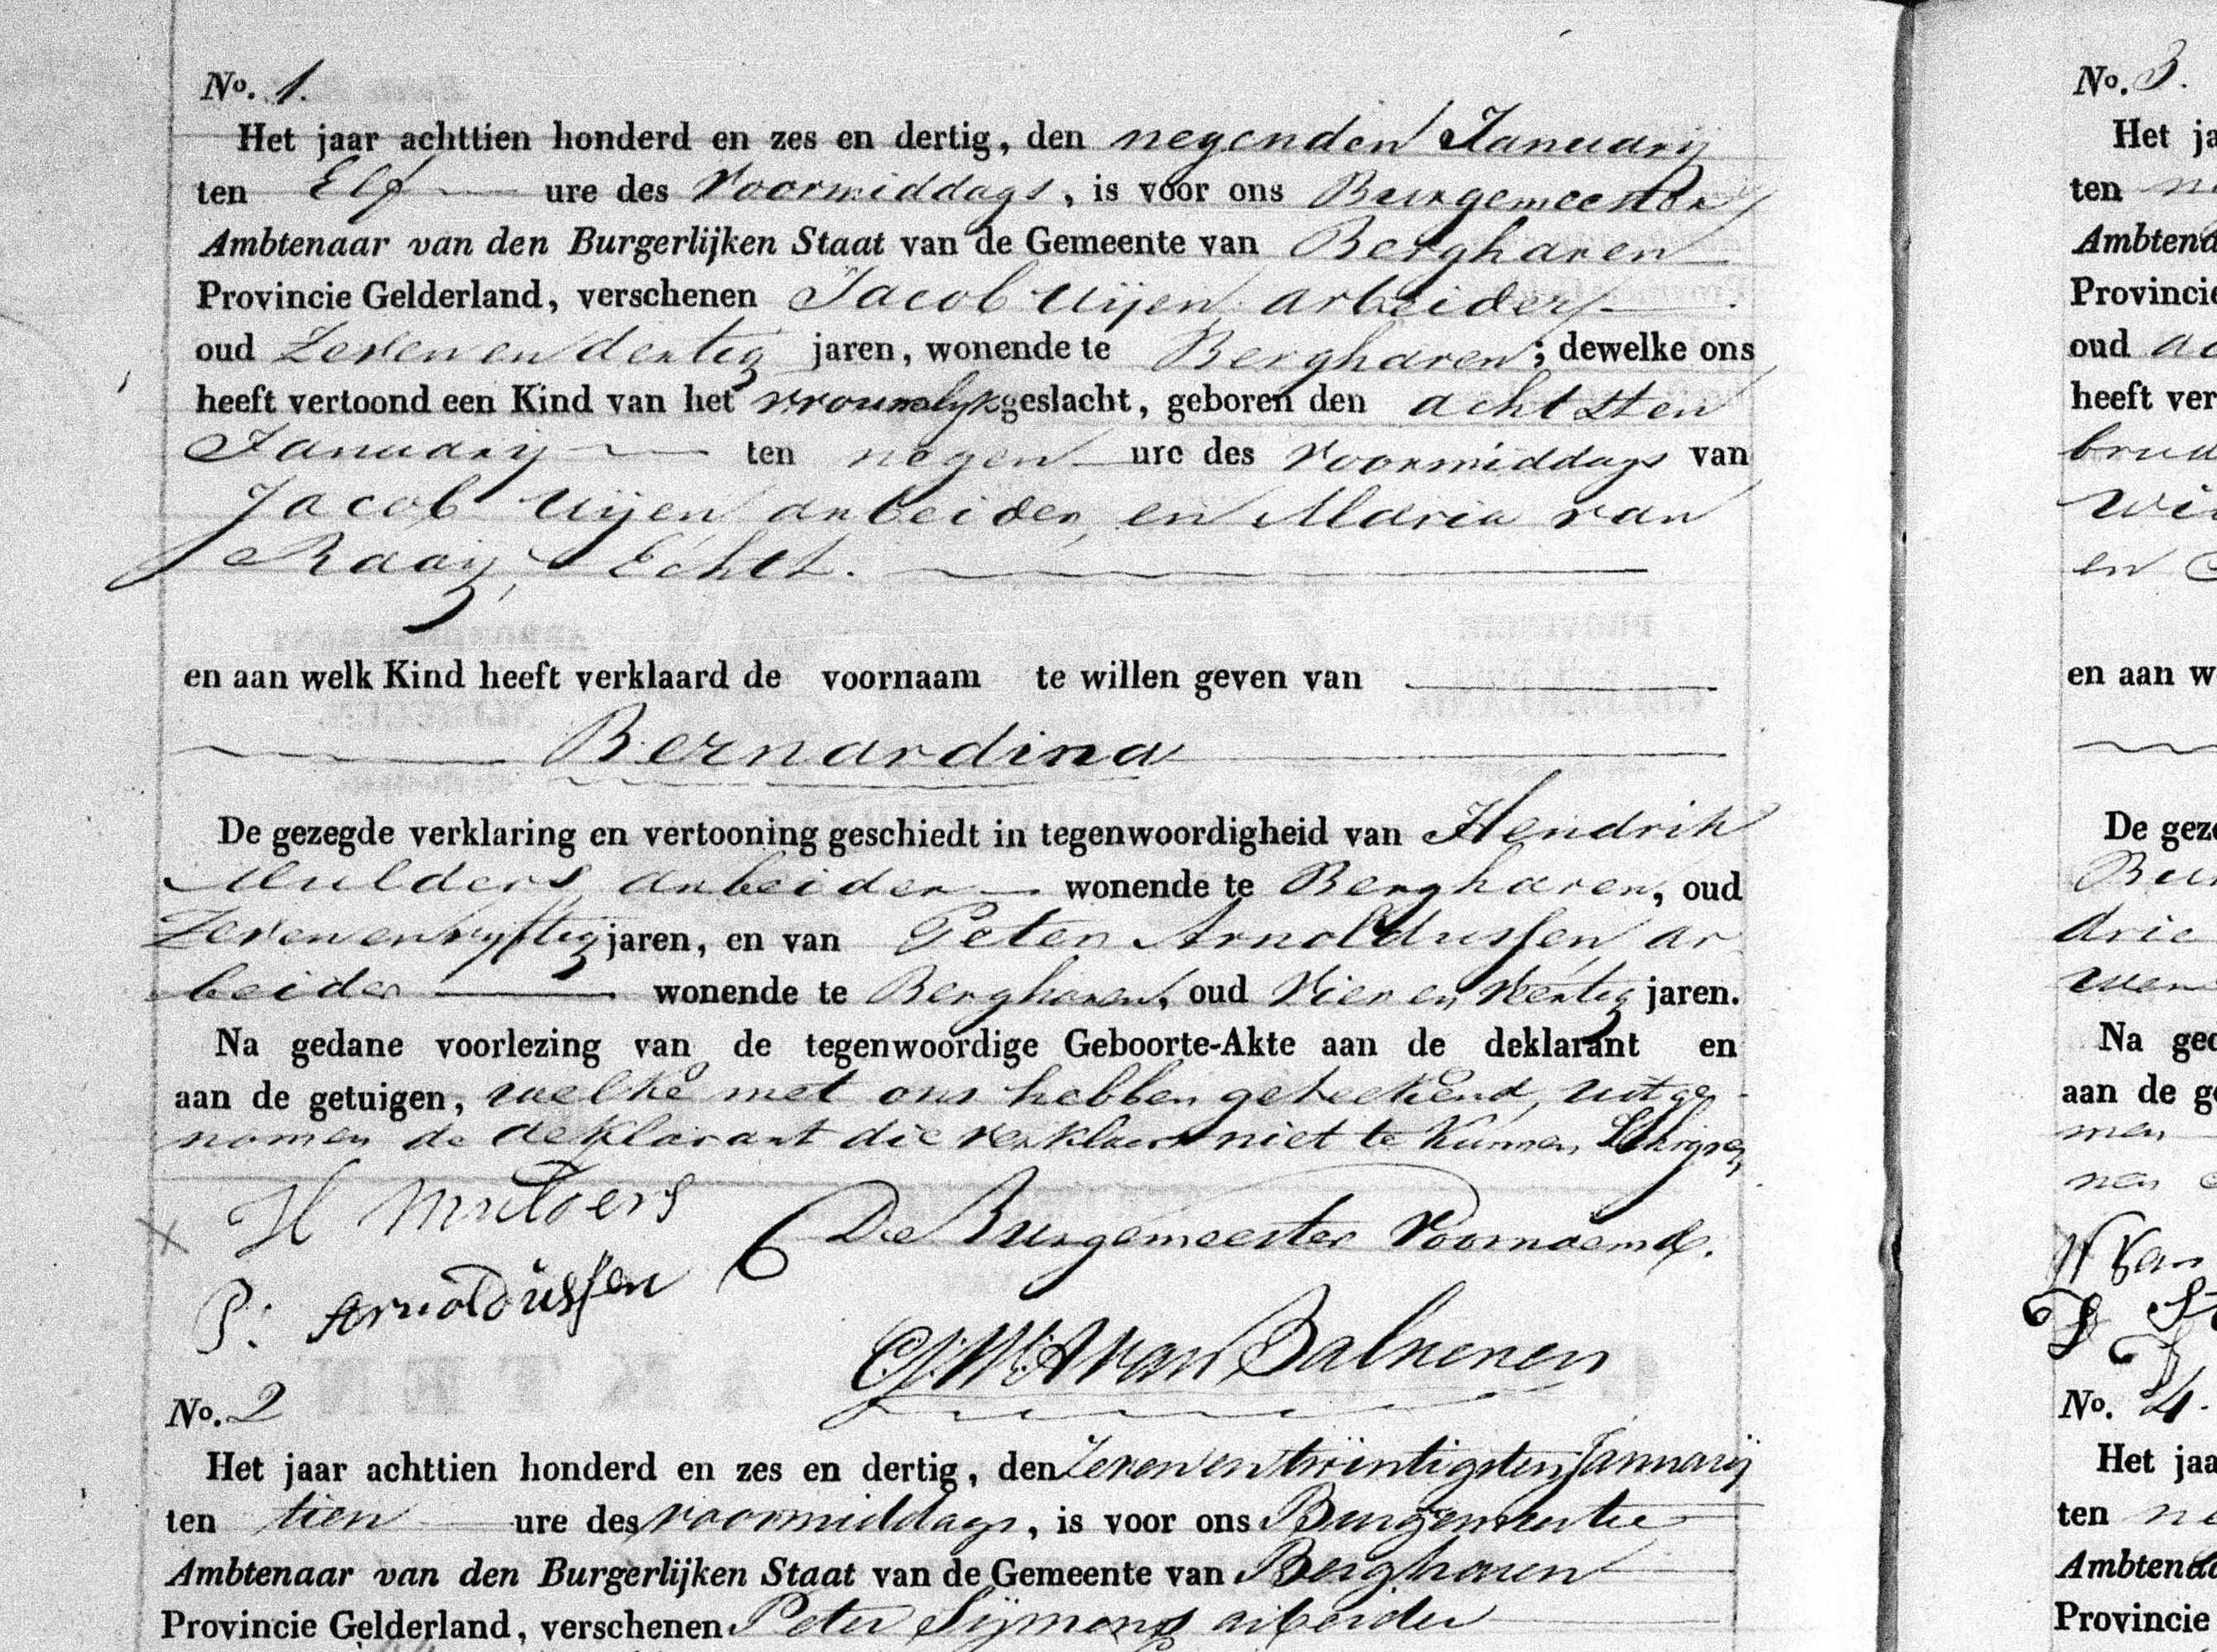 No. 1.
Het jaar achttien honderd en zes en dertig, den negenden Januarij
ten Elf ure des Voormiddags, is voor ons Burgemeester
Ambtenaar van den Burgerlijken Staat van de Gemeente van Bergharen
Provincie Gelderland, verschenen Jacob Uijen arbeider
oud Zeven en dertig jaren, wonende te Bergharen; dewelke ons
heeft vertoond een Kind van het vrouwlyk geslacht, geboren den achtsten
Januarij ten negen ure des Voormiddags van
Jacob Uijen arbeider, en Maria van
Raaij, Echt.
en aan welk Kind heeft verklaard de voornaam te willen geven van
Bernardina
De gezegde verklaring en vertooning geschiedt in tegenwoordigheid van Hendrik
Mulders, arbeider wonende te Bergharen, oud
Zeven en vyftig jaren, en van Peter Arnoldussen, ar
beider wonende te Bergharen, oud Vier en Veertig jaren.
Na gedane voorlezing van de tegenwoordige Geboorte-Akte aan de deklarant en
aan de getuigen, welke met ons hebben geteekend, uitge-
nomen de deklarant die verklaart niet te kunnen Schrijven
H Mulders De Burgemeester Voornoemd.
P: Arnoldussen
van Balveren
No. 2
Het jaar achttien honderd en zes en dertig, den Zeven en twintigsten Januarij
ten tien ure des voormiddags, is voor ons Burgemeester
Ambtenaar van den Burgerlijken Staat van de Gemeente van Bergharen
Provincie Gelderland, verschenen Peter Sijmons arbeider
No. 3.
Het ja
ten
Ambtena
Provincie
oud
heeft ver
en
en aan w
De geze
drie
Na ged
aan de ge
men
nen
No. 4.
Het jaa
ten
Ambtena
Provincie